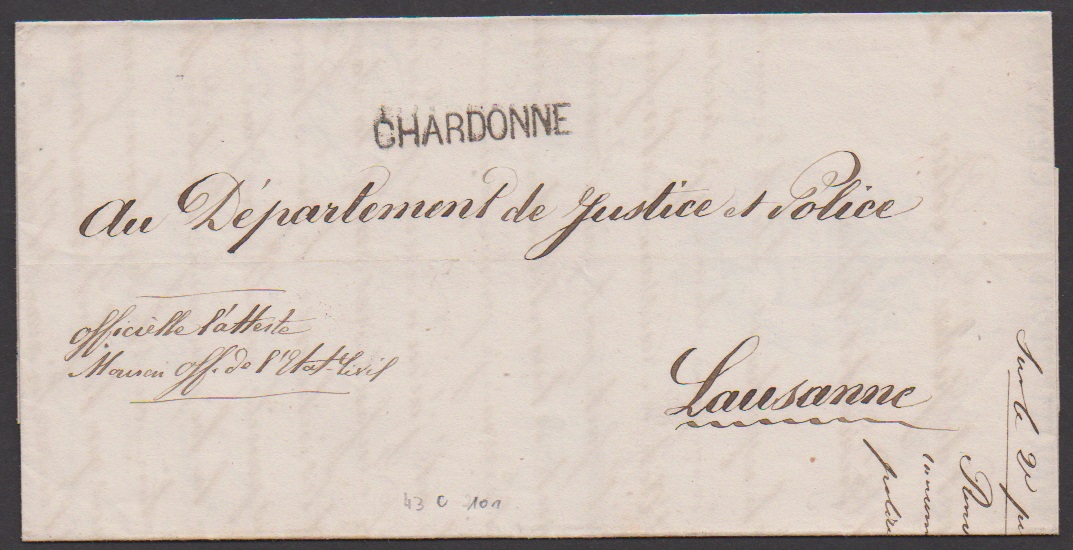 CHARDONNE
Au Département de Justice et Police
officielle l'atteste
Mouron off. de l'Etat-Civil
Lausanne
43 C 101
Sur le 2e
police